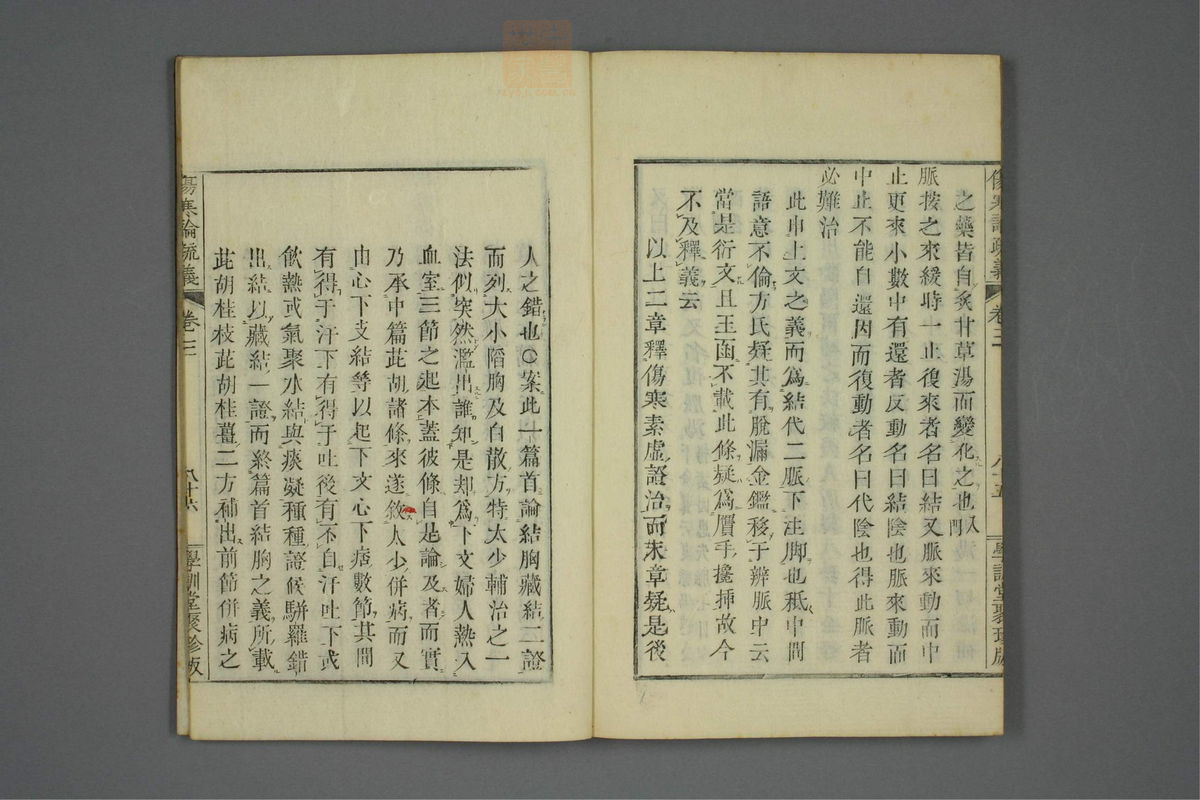 之藥皆自炙甘草湯而變化之也
脈按之來緩時一止復來者名曰結又脈來動而中
止更來小數中有還者反動名曰結陰也脈來動而
中止不能自還因而復動者名曰代陰也得此脈者
必難治
此申上文之義而爲結代二脈下注脚也秪中間
語意不倫方氏疑其有脫漏金鑑移于辨脈中云
當是衍文且玉函不載此條疑爲贋手攙揷故今
不及釋義云
以上二章釋傷寒素虛證治而末章疑是後
傷寒論疏義
卷三
八十五
學訓堂聚珍版
人之錯也〇案此一篇首論結胸藏結二證
而列大小陷胸及白散方特太少輔治之一
法似突然濫出誰知是却爲下文婦人熱入
血室三節之起本蓋彼條自是論及者而實
乃承中篇茈胡諸條來遂敘太少併病而又
由心下支結等以起下文心下痞數節其間
有得于汗下有得于吐後有不自汗吐下或
飮熱或氣聚水結與痰凝種種證候駢羅錯
出結以藏結一證而終篇首結胸之義所載
茈胡桂枝茈胡桂薑二方補出前節併病之
傷寒論疏義
卷三
八十六
學訓堂聚珍版